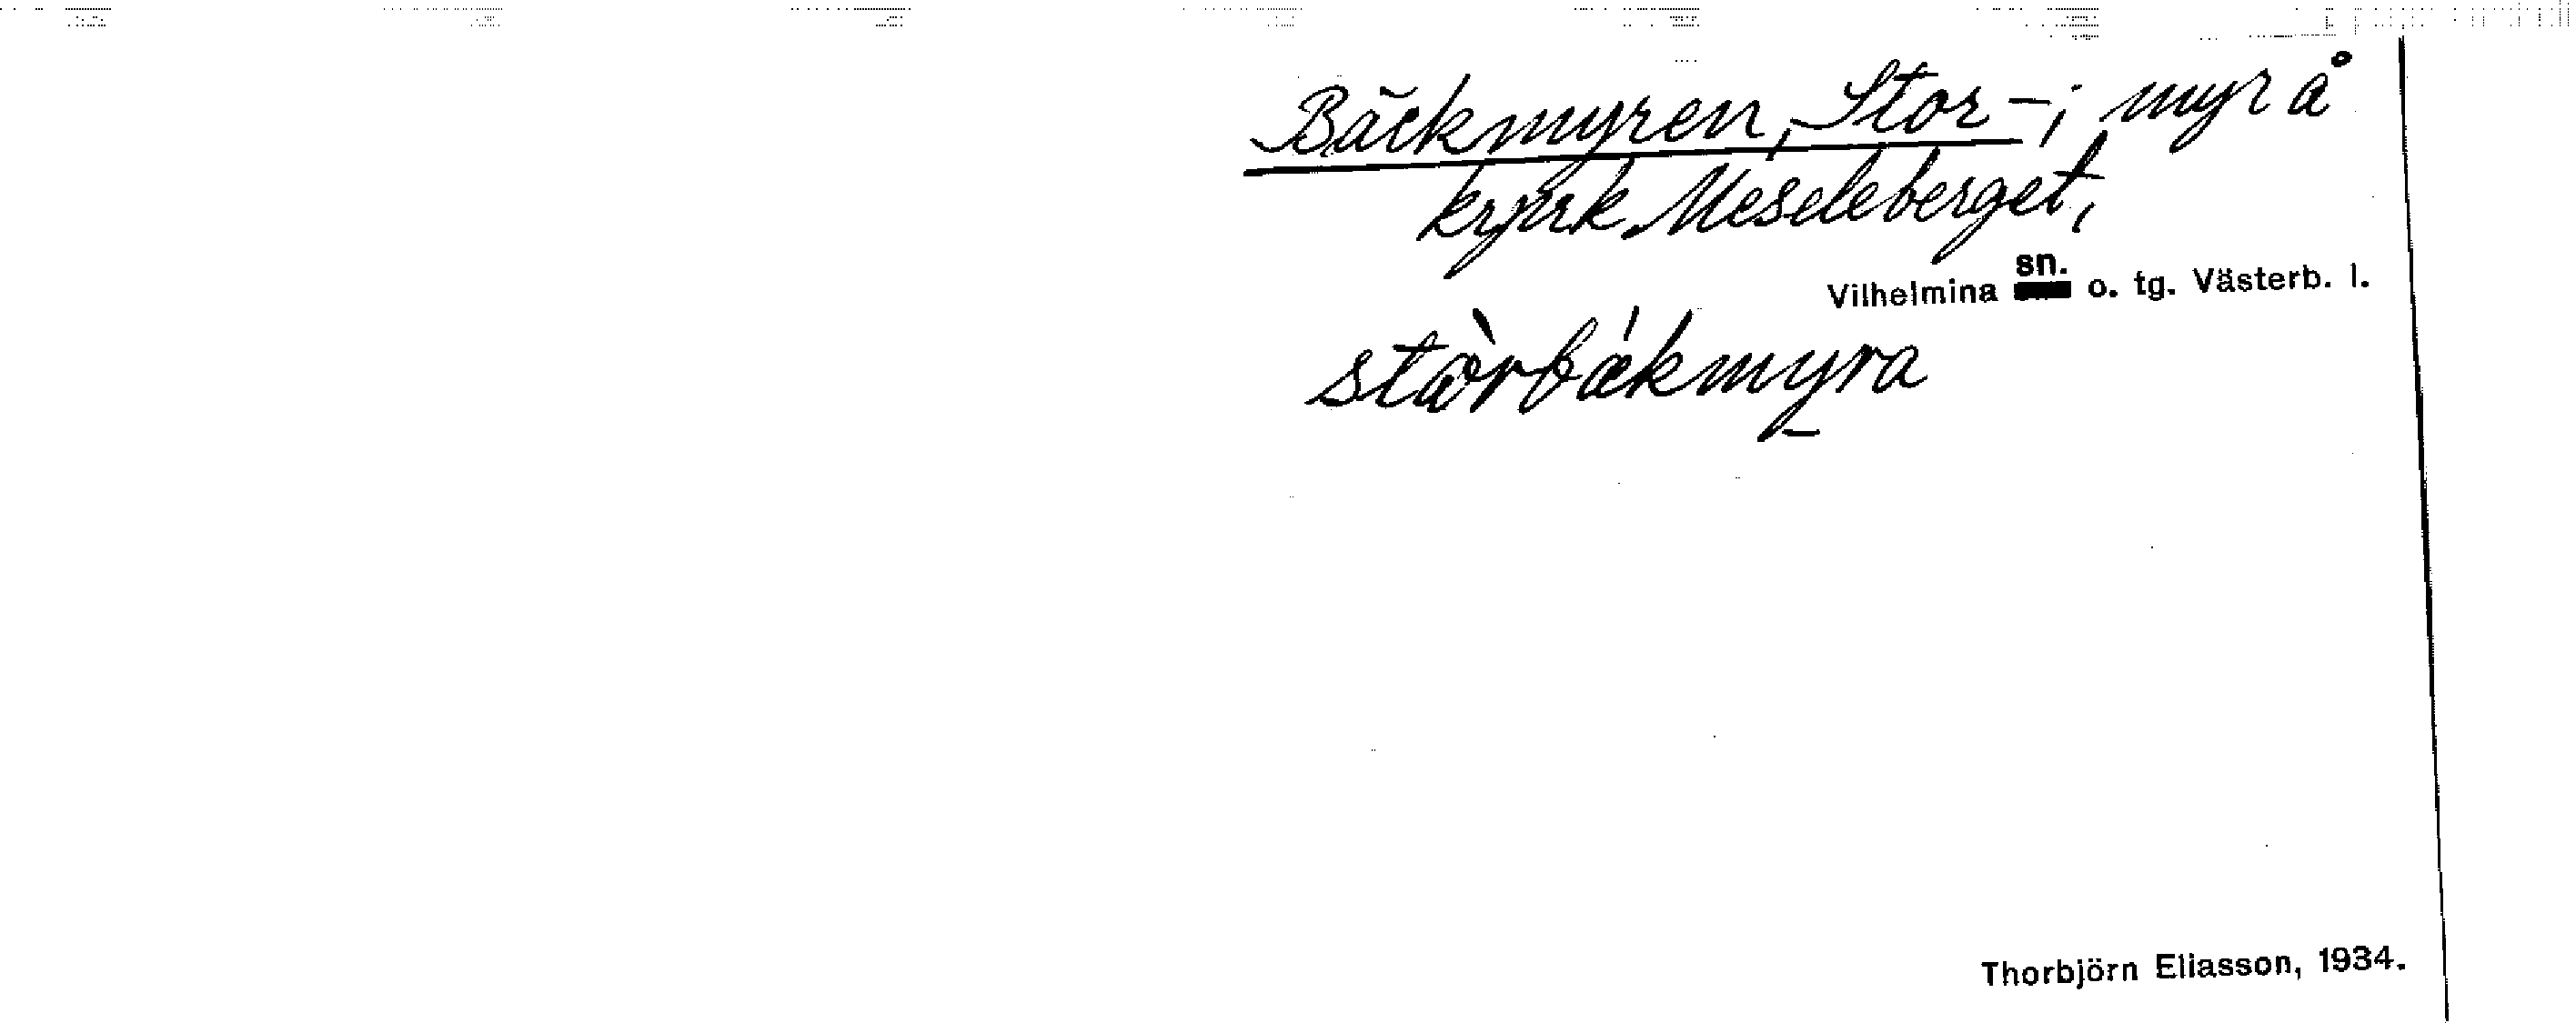 Bäckmyren, Stor-; myr å
krpark. Meseleberget,
Vilhelmina sn. o. tg. Västerb. l.
stòrbǽkmyra
Thorbjörn Eliasson, 1934.